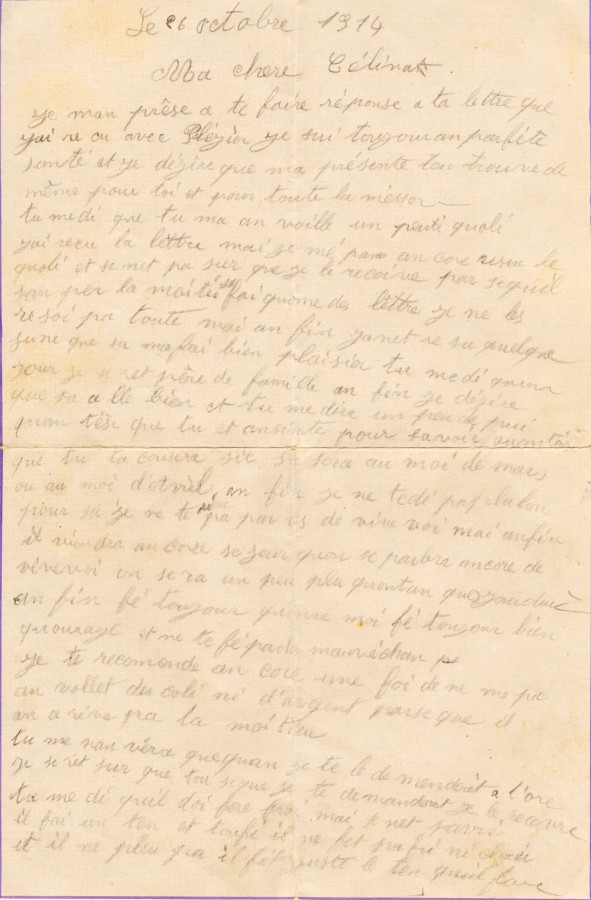 Le 26 octobre 1914
Ma chere Célina
je man prêse a te faire réponse a ta lettre que
jai re cu avec Plézir je sui toujour an parfète
santé et je dézire que ma présente ten trouve de
même pour toi et pour toute la méson
tu me di que tu ma an voillé un peuti quoli
jai reçu la lettre mai je né pas an core resu le
quoli et se net pa sur que je le recoive par se quil
san per la moitié se fai quome des lettre je ne les
resoi pa toute mai an fin janet re su quelque
zune que sa ma fai bien plaisir tu me di quun
jour je seret père de famille an fin je dézire
que sa alle bien et tu me dira un peu de pui
quan têse que tu et ansinte pour savoir quan
que tu ta cousera sie se sera au moi de mars
ou au moi d'avril, an fin je ne te di pas plu lon
pour sa je ne te pa par de vive voi mai anfin
il viendra ancore se jour quon se parlera ancore de
vive voi on sera un peu plu quontan que joudui
an fin fé toujour quome moi fé toujour bien
quourage et ne te fé pas de mauvé san
je te recomende an core une foi de ne me pa
an voller des coli ni d'argent parse que il
an arive pa la moitieu
tu me nan véra que quan je te le demenderet a l'ore
je seret sur que tou se que je te demanderet je le recevre
tu me di quil doi fere froi mai se net pa vrai
il fai un ten et toufé il ne fet pa froi ni chau
et il ne pleu pa il fét juste le ten quil faut